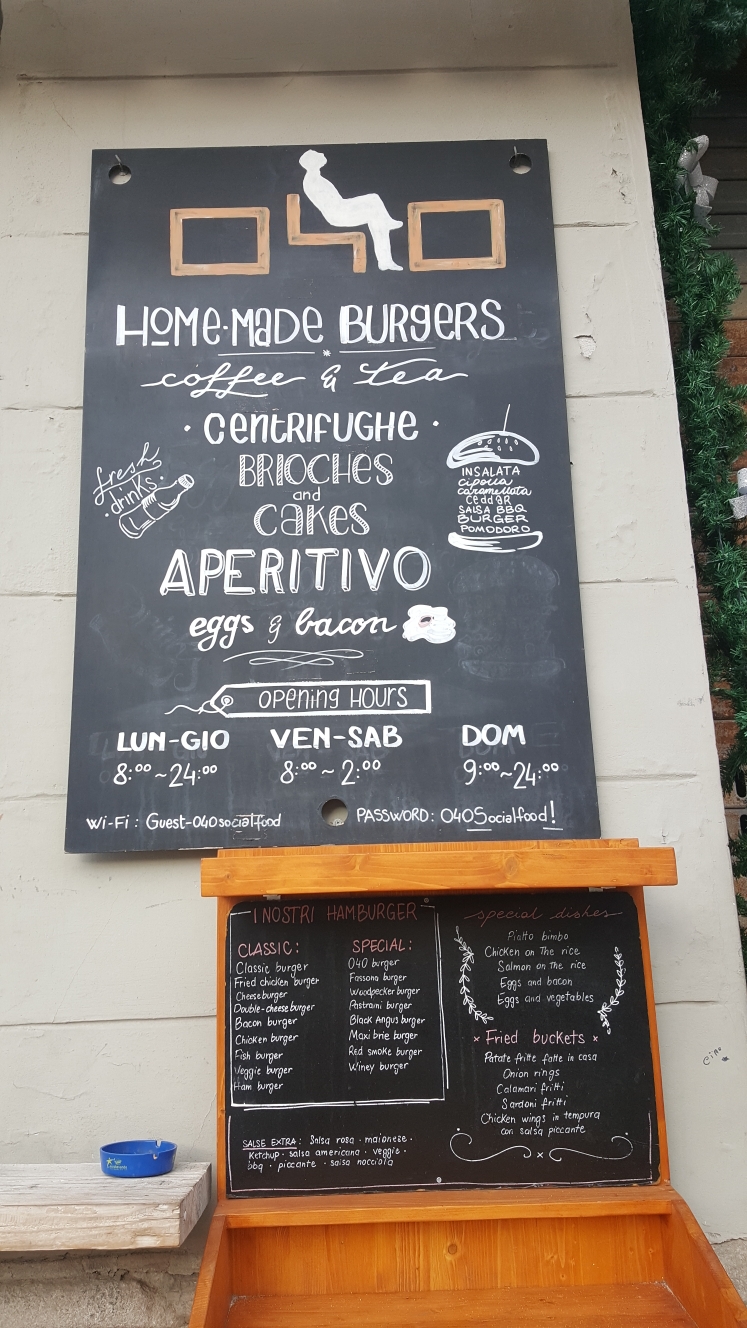 040
HOMe·MaDe BURgeRS
coffee & tea
· CeNtRIFUGHe ·
fresh
drinks
BRIOCHeS
and
CaKeS
INSALATA
cipolla
caramellata
CeddaR
SALSA BBQ
BURGER
POMODORO
APERITIVO
eggs & bacon
OPening HOURS
LUN-GIO VEN-SAB DOM
8:00~24:00 8:00~2:00 9:00~24:00
Wi-Fi: Guest-040socialfood PASSWORD: 040Socialfood!
I NOSTRI HAMBURGER
CLASSIC:
Classic burger
Fried chicken burger
Cheeseburger
Double-cheeseburger
Bacon burger
Chicken burger
Fish burger
Veggie burger
Ham burger
SPECIAL:
040 burger
Fassona burger
Woodpecker burger
Pastrami burger
Black Angus burger
Maxi brie burger
Red smoke burger
Winey burger
special dishes
Piatto bimbo
Chicken on The rice
Salmon on The rice
Eggs and bacon
Eggs and vegetables
× Fried buckets ×
Patate fritte fatte in casa
Onion rings
Calamari fritti
Sardoni fritti
Chicken wings in tempura
con salsa piccante
SALSE EXTRA: Salsa rosa · maionese ·
Ketchup · salsa americana · veggie ·
bbq · piccante · salsa nocciola
ciao